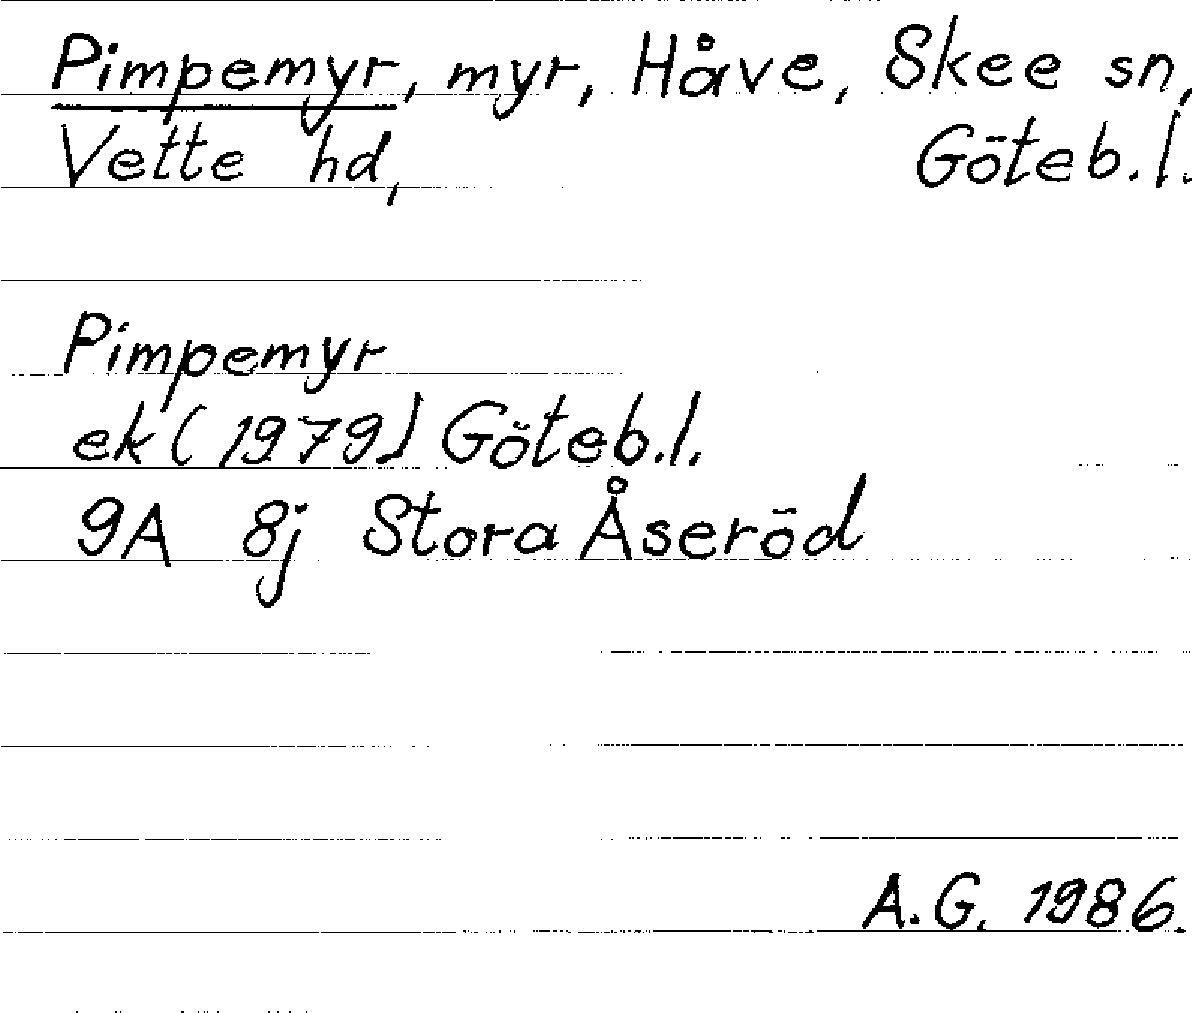 Pimpemyr, myr, Håve, Skee sn,
Vette hd, Göteb.l.
Pimpemyr
ek (1979) Göteb.l.
9A 8j Stora Åseröd
A.G. 1986.